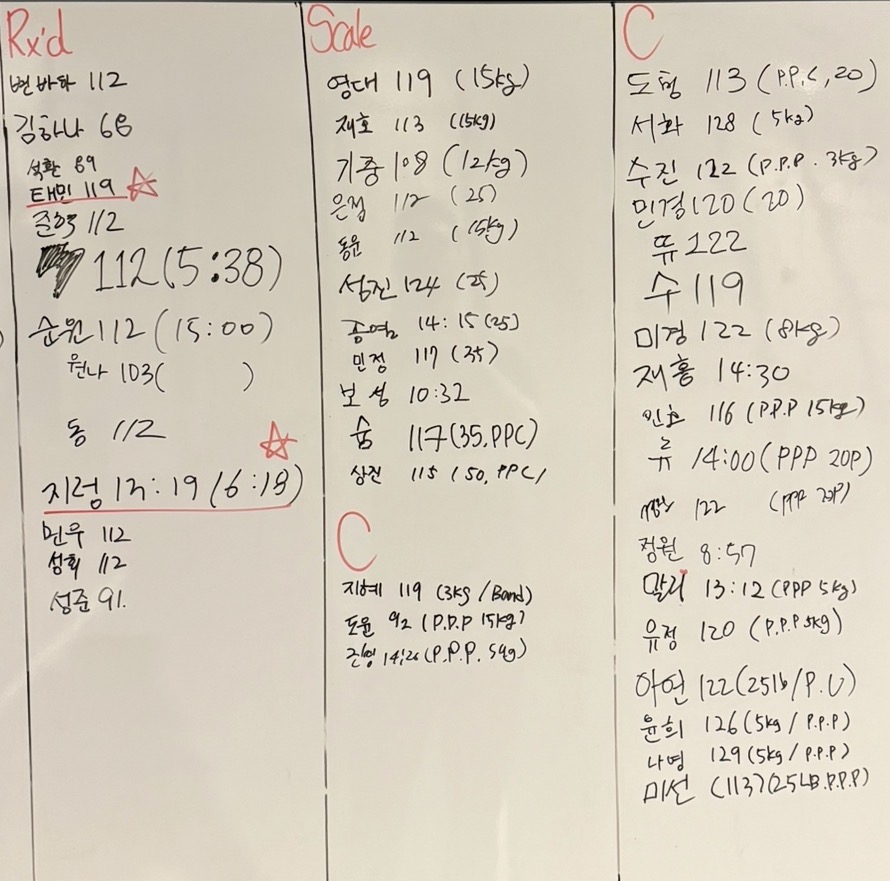 Rx'd
변바다 112
김하나 68
석환 89
태민 119
준혁 112
112(5:38)
순원 112 (15:00)
원나 103( )
동 112
지렁 19 (6:18)
민우 112
성희 112
성준 91.
Scale
영대 119 (15kg)
재호 113 (15kg)
기종 108 (12kg)
은정 112 (25)
동윤 112 (15kg)
섬진 124 (25)
종열 14:15 (25)
민정 117 (35)
보성 10:32
숨 117(35.PPC)
상진 115 (50, PPC)
C
지혜 119 (3kg/Band)
도윤 92 (P.P.P 15kg)
준영 14:26 (P.P.P. 5kg)
C
도형 113 (P.P.C, 20)
서화 128 (5kg)
수진 122 (P.P.P. 3kg)
민경 120 (20)
뜌 122
수 119
미경 122 (8kg)
재홍 14:30
민호 116 (P.P.P 15kg)
류 14:00 (PPP 20P)
122 (PPP 20P)
정원 8:57
말리 13:12 (PPP 5kg)
유정 120 (P.P.P 5kg)
아연 122 (25lb/P.U)
윤희 126 (5kg/P.P.P)
나영 129 (5kg/P.P.P)
미선 (113) (25LB.P.P.P)